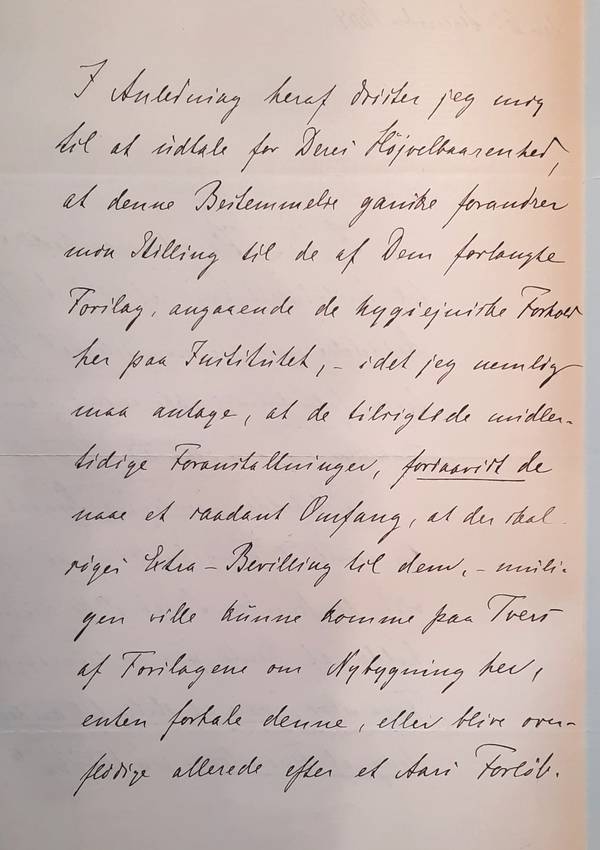 I Anledning heraf drister jeg mig
til at udtale for Deres Højvelbaarenhed,
at denne Bestemmelse ganske forandrer
min Stilling til de af Dem forlangte
Forslag, angaaende de hygiejniske Forhold
her paa Institutet, – idet jeg nemlig
maa antage, at de tilsigtede midler-
tidige Foranstaltninger, forsaavidt de
naae et saadant Omfang, at der skal
søges Extra-Bevilling til dem, – muli-
gen ville kunne komme paa Tvers
af Forslagene om Nybygning her,
enten forhale denne, eller blive over-
flødige allerede efter et Aars Forløb.